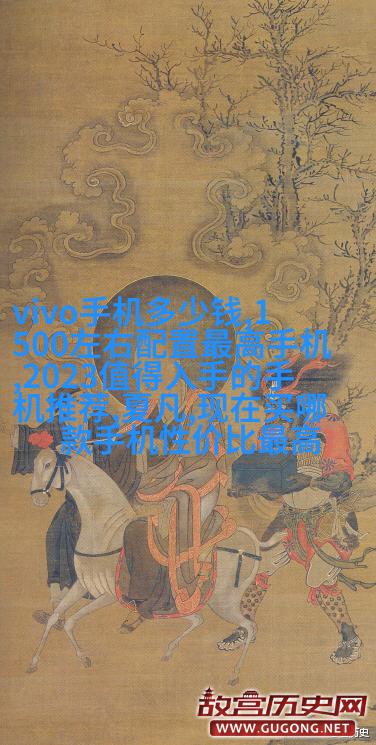 vivo手机多少钱,1
500左右配置最高手机
,2023值得入手的手
机推荐,夏凡,现在买哪
款手机性价比最高
故宫历史网
WWW.GUGONG.NET
历史